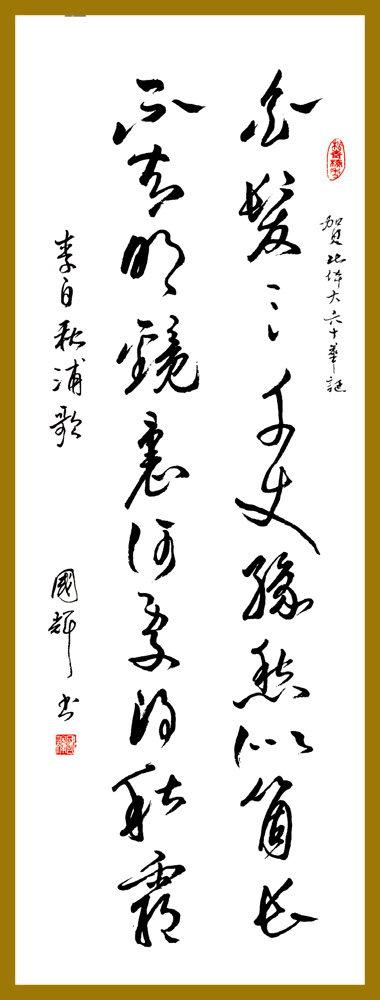 賀比大六十華誕
金髮三千丈緣愁似箇長
不知明鏡裏何處得秋霜
李白秋浦歌 國輝書